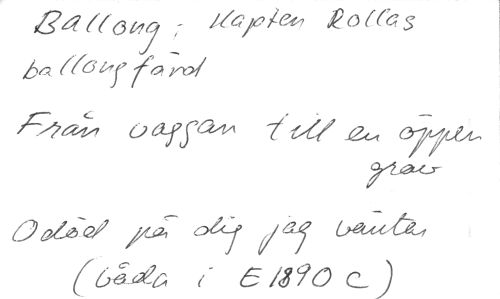 Ballong; Kapten Rollas
ballongfärd
Från vaggan till en öppen
grav
Odöd på dig jag väntar
(båda i E1890c)